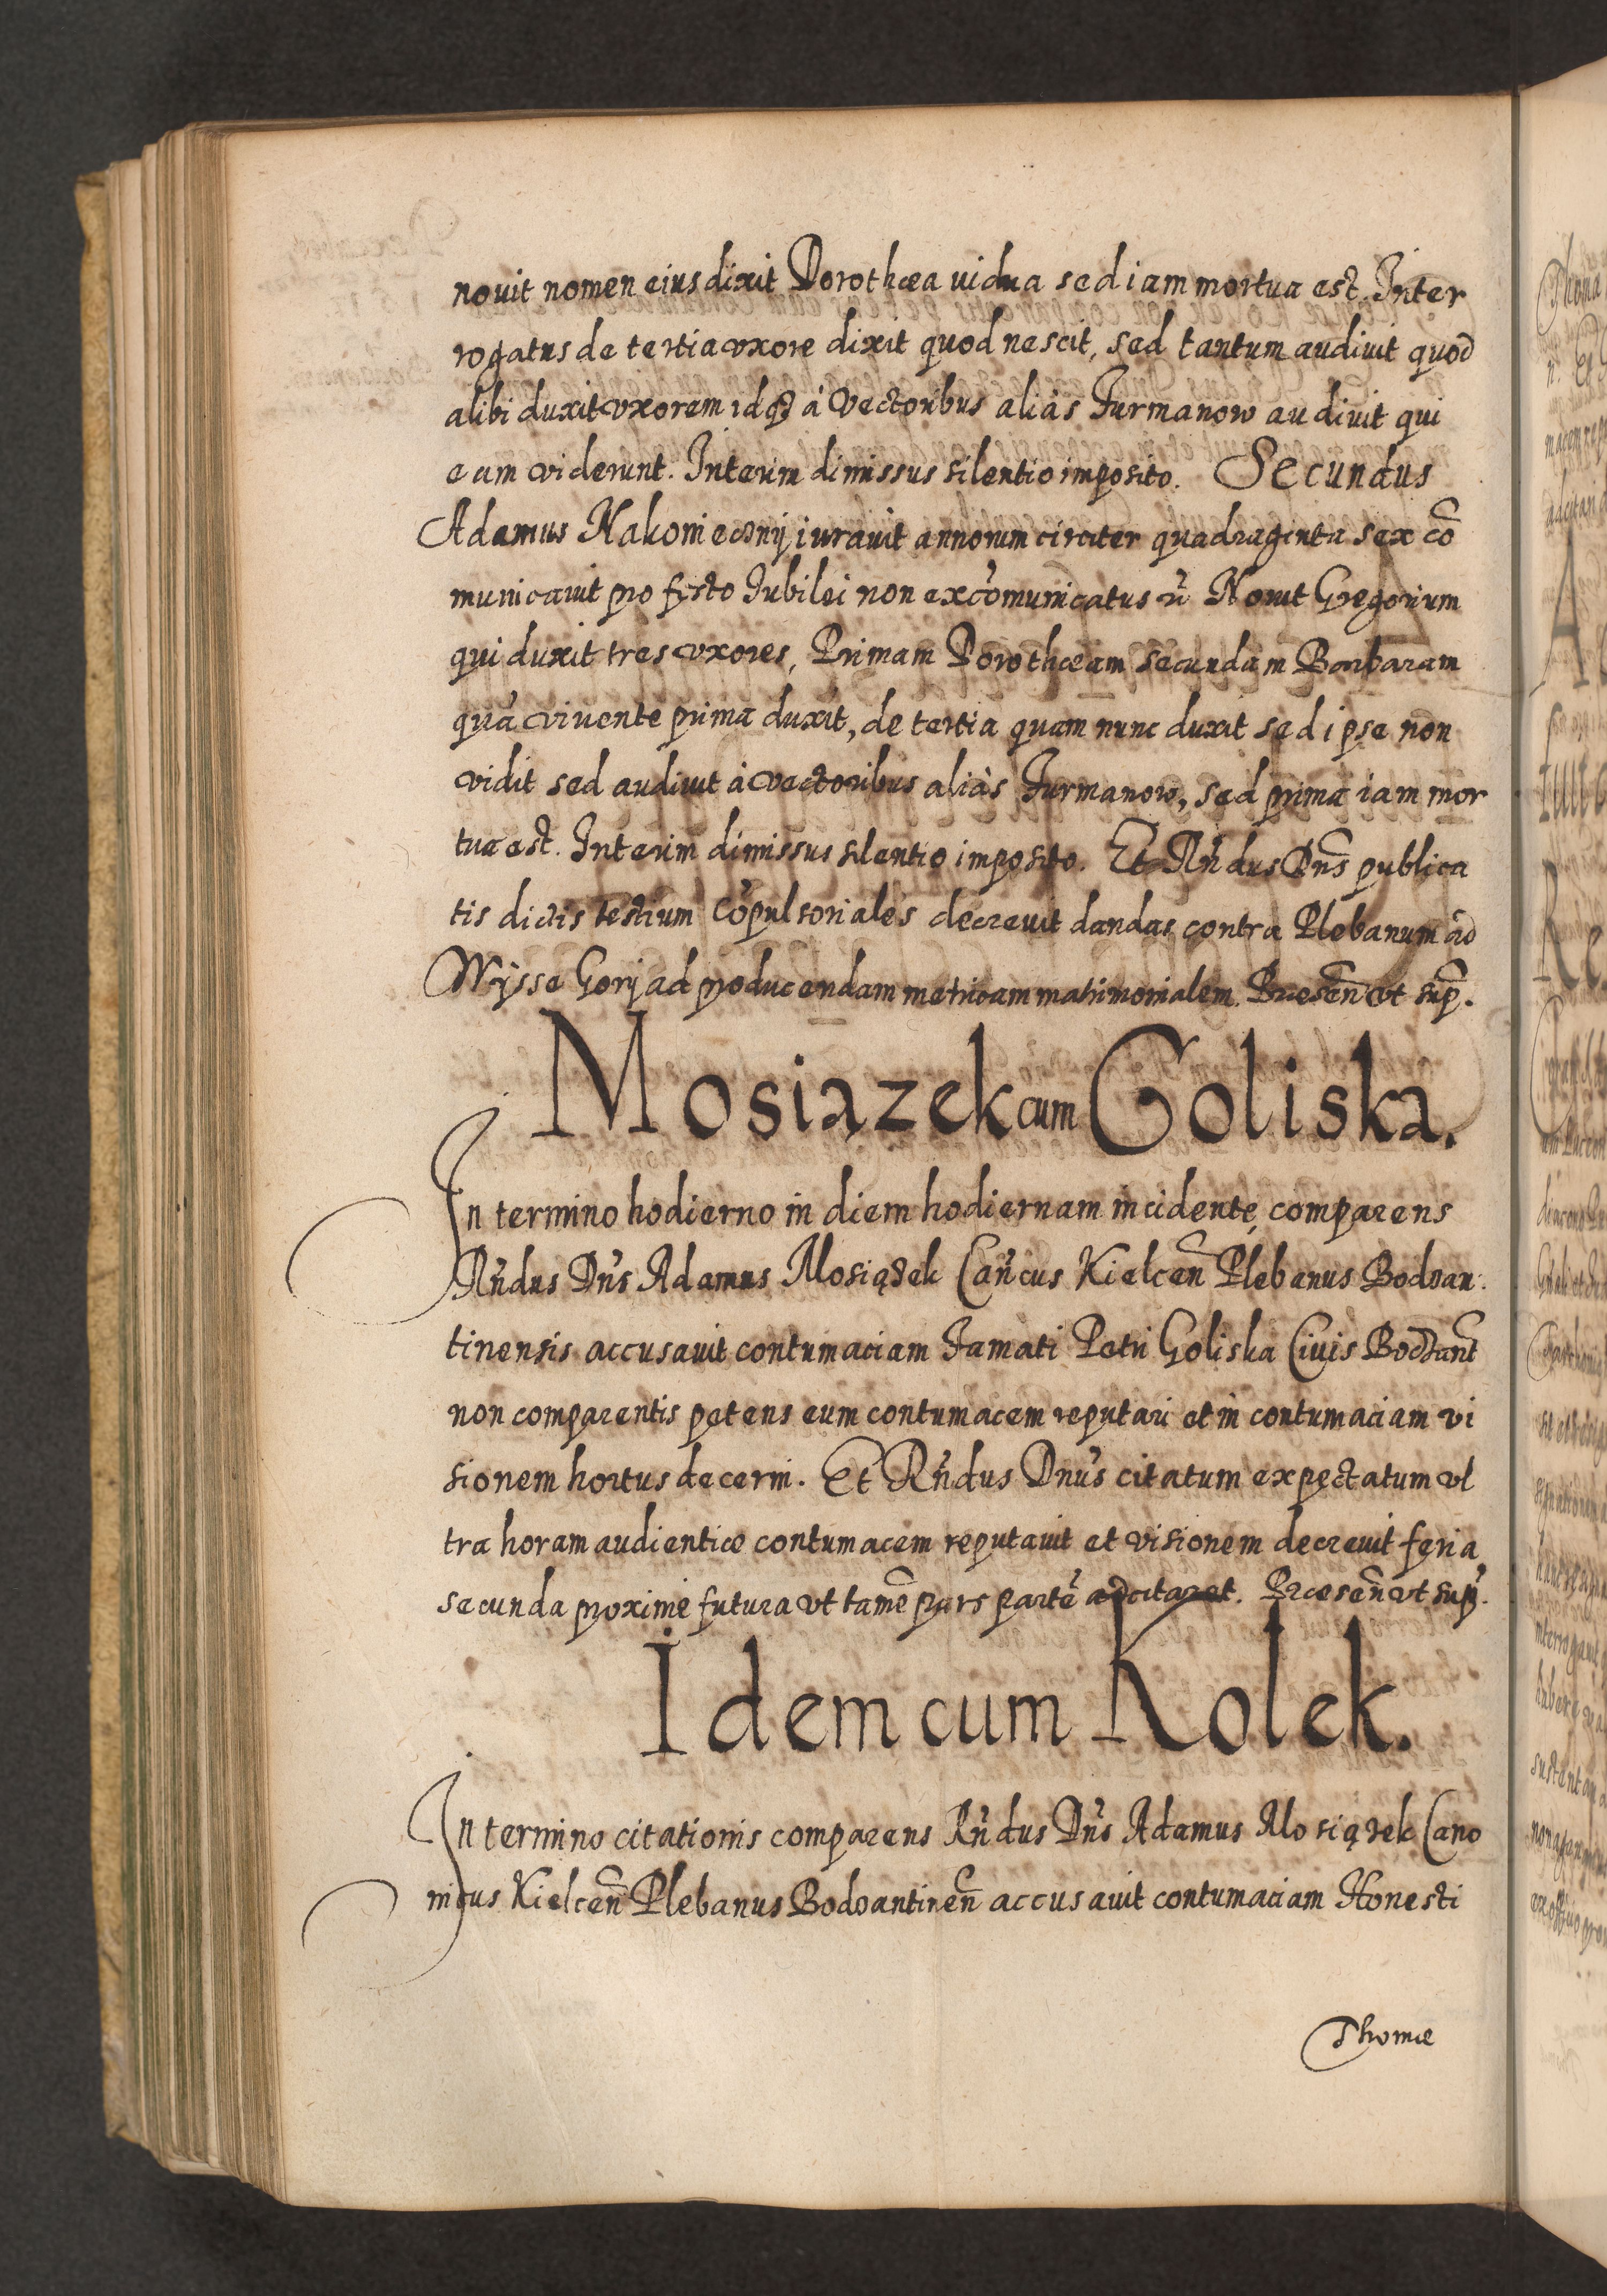 novit nomen eius dixit Dorothæa uidua sed iam mortua est. Inter
rogatus de tertia vxore dixit quod nescit, sed tantum audivit quod
alibi duxit vxorem idq3 à Vectoribus aliàs Furmanow audiuit qui
eam viderunt. Interim dimissus silentio imposito. Secundus
Adamus Nakoniecznij iurauit annorum circiter quadraginta sex cõ
municauit pro festo Iubilei non excõmunicatus Nouit Gregorium
qui duxit tres vxores, Primam Dorothæam secundam Barbaram
quã vivente prima duxit, de tertia quam nunc duxit sed ipse non
vidit sed audiuit à vectoribus aliàs Furmanow, sed prima iam mor
tua est. Interim dimissus silentio imposito. Et Rñdus Dñs publica
tis dictis testium cõpulsoriales decreuit dandas contra Plebanum ad
Wysse Gorij ad producendam metricam matrimonialem. Præseñ vt sup.
Mosiazek cum Goliska.
In termino hodierno in diem hodiernam incidente comparens
Rñdus Dñs Adamus Mosiązek Cañcus Kielceñ Plebanus Bodzan
tinensis accusauit contumaciam Famati Petri Goliska Ciuis Bodzant
non comparentis petens eum contumacem reputari et in contumaciam vi
sionem hortus decerni. Et Rñdus Dnus citatum expectatum vl
tra horam audientiæ contumacem reputauit et visionem decreuit feria
secunda proxime futura vt tamẽ pars partẽ adcitaret. Præseñ vt sup.
Idem cum Kolek.
In termino citationis comparens Rñdus Dñs Adamus Mosiązek Cano
nicus Kielceñ Plebanus Bodzantineñ accusauit contumaciam Honesti
Thomæ